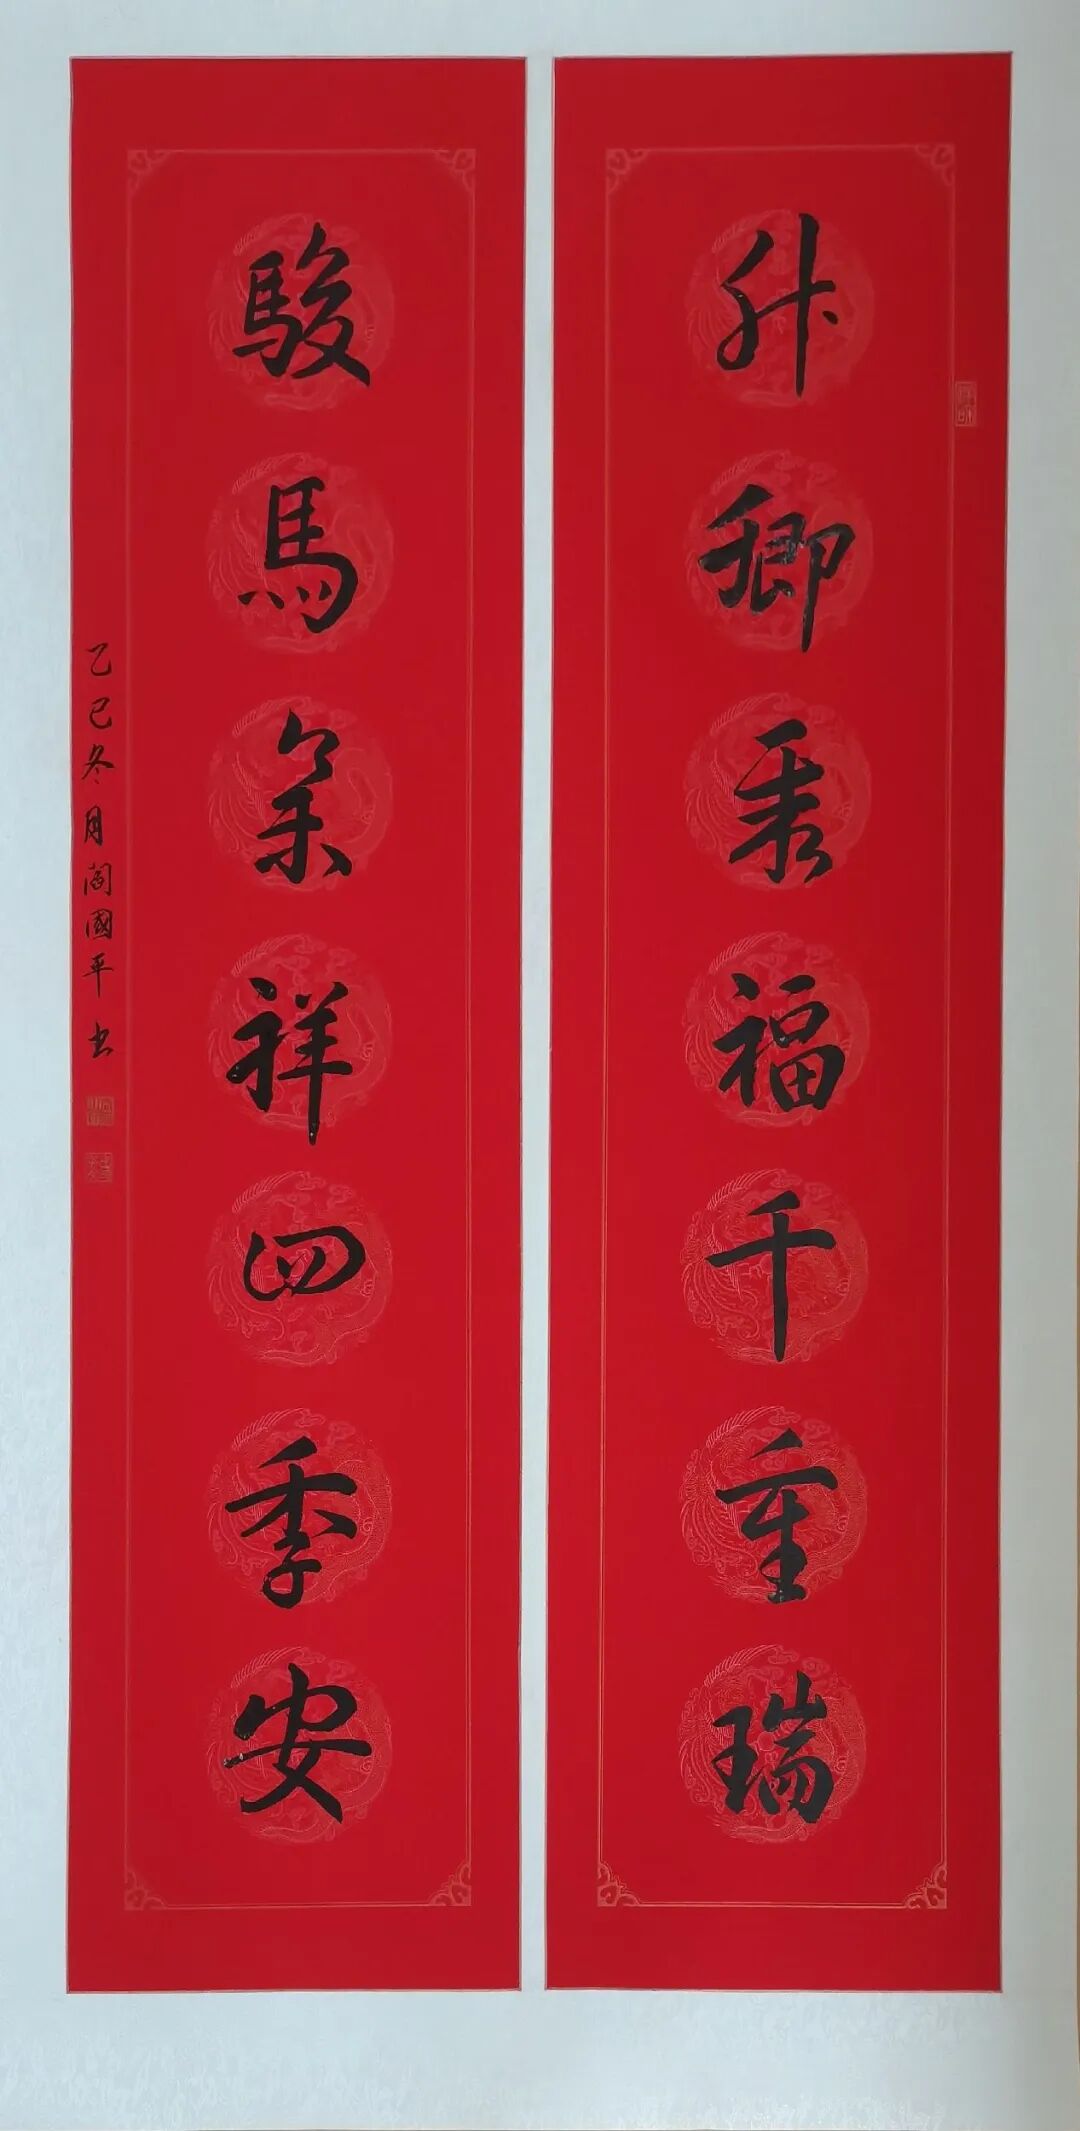 升卿福千重瑞
駿馬祥四季安
乙巳冬月閻國平书